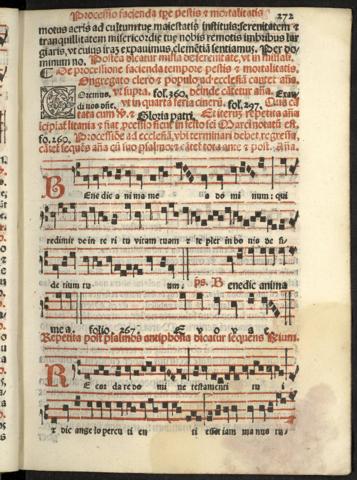 Processio facienda tpe pestis & mortalitatis 272
motus aeris ad cultum tue maiestatis institue: serenitatem &
tranquillitatem misericordie tue nobis remotis imbribus lar
giaris, vt cuius iram expauimus, clemētiā sentiamus. Per do
minum no. Postea dicatur missa de serenitate, vt in missali.
De processione facienda tempore pestis & mortalitatis.
Congregato clero & populo ad ecclesiā cantet añā.
Oremus. vt supra. fol. 260. deinde cātetur añā. Exau
di nos dñe. vt in quarta feria cinerū. fol. 297.
Gloria patri. Et iterum repetita añā
fo. 269. Processiōe ad ecclesiā, vbi terminari debet, regressi,
cātēt sequēs añā cū suo psalmo & cātet tota ante & post. añā.
BEne dic a ni ma me a do mi num: qui
redimit de in te ri tu vitam tuam & re plet in bo nis de si
de rium tu um. ps. Benedic anima
mea. folio. 267. E v o v a e
Repetita post psalmos antiphona dicatur sequens
REcor da re do mi ne testamenti tu i
& dic ange lo percu ti en ti cesset iam ma nus tu